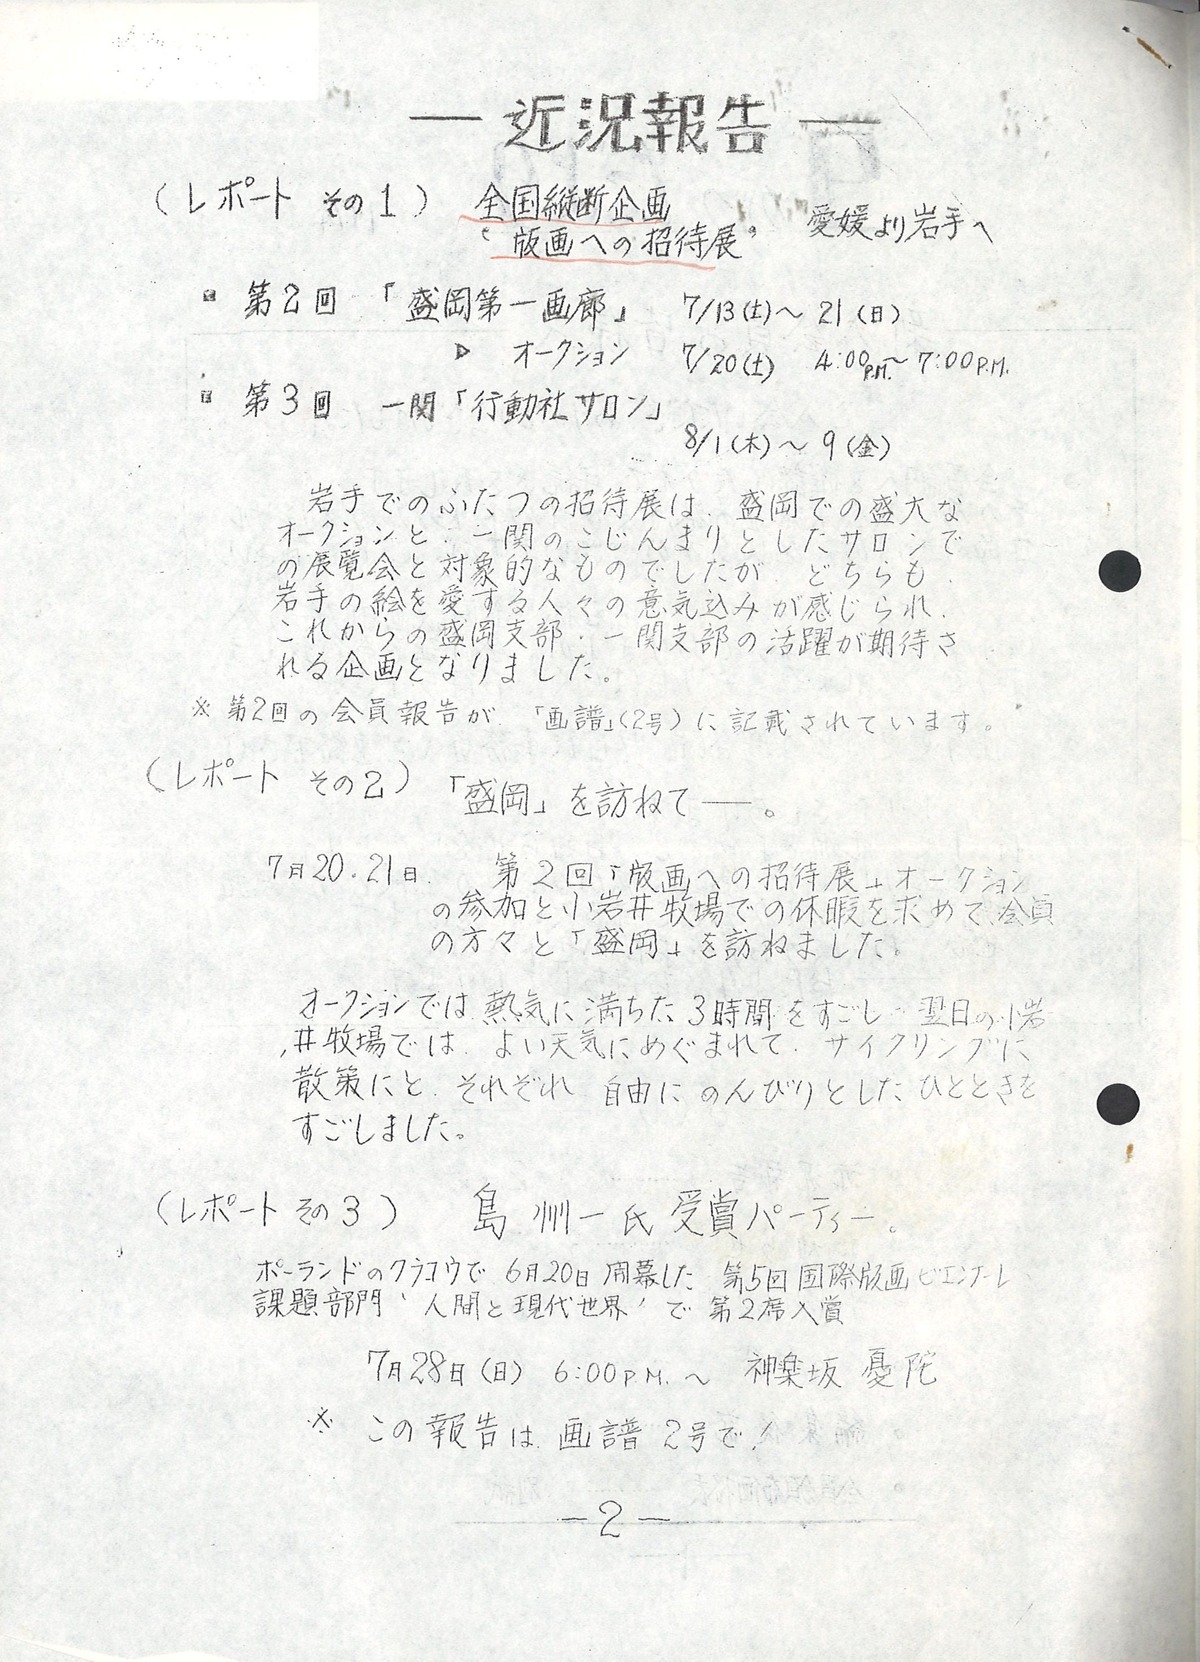 ― 近況報告 ―
(レポート その1) 全国縦断企画
“版画への招待展” 愛媛より岩手へ
▪ 第2回 「盛岡第一画廊」 7/13(土)〜21(日)
▷ オークション 7/20(土) 4:00P.M.〜7:00P.M.
▪ 第3回 一関「行動社サロン」
8/1(木)〜9(金)
岩手でのふたつの招待展は、盛岡での盛大な
オークションと、一関のこじんまりとしたサロンで
の展覧会と対象的なものでしたが、どちらも、
岩手の絵を愛する人々の意気込みが感じられ、
これからの盛岡支部・一関支部の活躍が期待さ
れる企画となりました。
※ 第2回の会員報告が、「画譜」(2号)に記載されています。
(レポート その2) 「盛岡」を訪ねて――。
7月20.21日、 第2回「版画への招待展」オークション
の参加と小岩井牧場での休暇を求めて、会員
の方々と「盛岡」を訪ねました。
オークションでは熱気に満ちた3時間をすごし、翌日の小岩
井牧場では、よい天気にめぐまれて、サイクリングに
散策にと、それぞれ自由にのんびりとしたひとときを
すごしました。
(レポート その3) 島州一氏受賞パーティー。
ポーランドのクラコウで6月20日開幕した第5回国際版画ビエンナーレ
課題部門‘人間と現代世界’で第2席入賞
7月28日(日) 6:00P.M.〜 神楽坂 憂陀
※ この報告は画譜2号で!
―2―